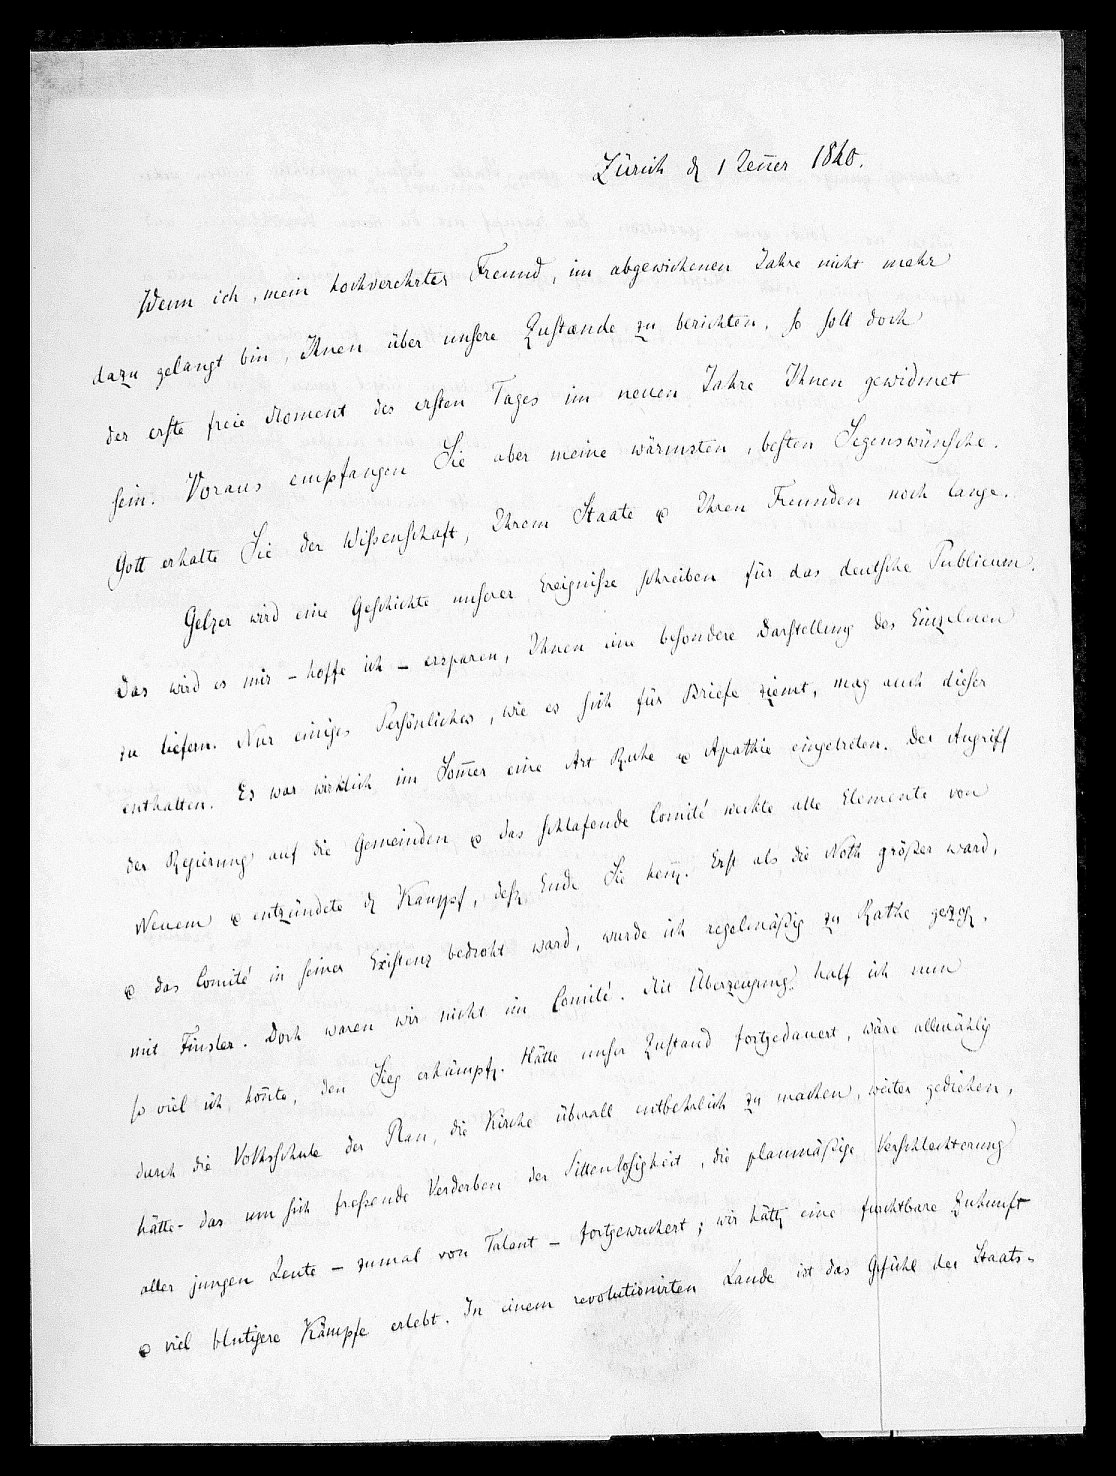 Zürich d 1 Jenner 1840.
Wenn ich, mein hochverehrter Freund, im abgewichenen Jahre nicht mehr
dazu gelangt bin, Ihnen über unsere Zustænde zu berichten, so soll doch
der erste freie Moment des ersten Tages im neuen Jahre Ihnen gewidmet
sein. Voraus empfangen Sie aber meine wärmsten, besten Segenswünsche.
Gott erhalte Sie der Wißenschaft, Ihrem Staate & Ihren Freunden noch lange.
Gelzer wird eine Geschichte unserer Ereigniße schreiben für das deutsche Publicum.
Das wird es mir – hoffe ich – ersparen, Ihnen eine besondere Darstellung des Einzelnen
zu liefern. Nur einiges Persönliches, wie es sich für Briefe ziemt, mag auch dieser
enthalten. Es war wirklich im Som̄er eine Art Ruhe & Apathie eingetreten. Der Angriff
der Regierung auf die Gemeinden & das schlafende Comité weckte alle Elemente von
Neuem & entzündete d Kampf, deß Ende Sie ken̄. Erst als die Noth größer ward,
& das Comité in seiner Existenz bedroht ward, wurde ich regelmäßig zu Rathe gezog.
mit Finsler. Doch waren wir nicht im Comité. Mit Überzeugung half ich nun
so viel ich kon̄te, den Sieg erkämpf. Hätte unser Zustand fortgedauert, wäre allmählig
durch die Volksschule der Plan, die Kirche überall entbehrlich zu machen, weiter gediehen,
hätte das um sich freßende Verderben der Sittenlosigkeit, die planmäßige Verschlechterung
aller jungen Leute – zumal von Talent – fortgewuchert; wir hätt eine furchtbare Zukunft
& viel blutigere Kämpfe erlebt. In einem revolutionirten Lande ist das Gefühl der Staats-